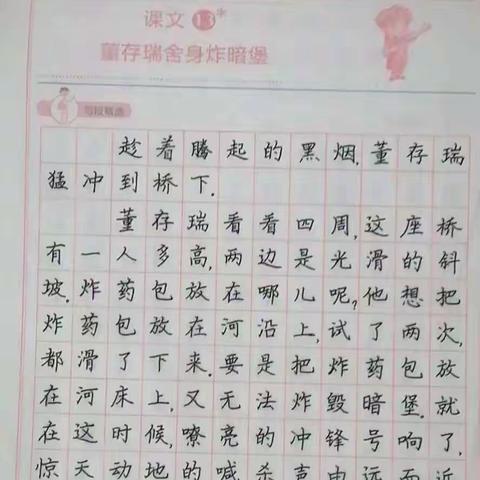 课文 13*
董存瑞舍身炸暗堡
趁着腾起的黑烟，董存瑞
猛冲到桥下.
董存瑞看看四周,这座桥
有一人多高,两边是光滑的斜
坡.炸药包放在哪儿呢?他想把
炸药包放在河沿上,试了两次,
都滑了下来.要是把炸药包放
在河床上,又无法炸毁暗堡.就
在这时候,嘹亮的冲锋号响了.
惊天动地的喊杀声由远而近